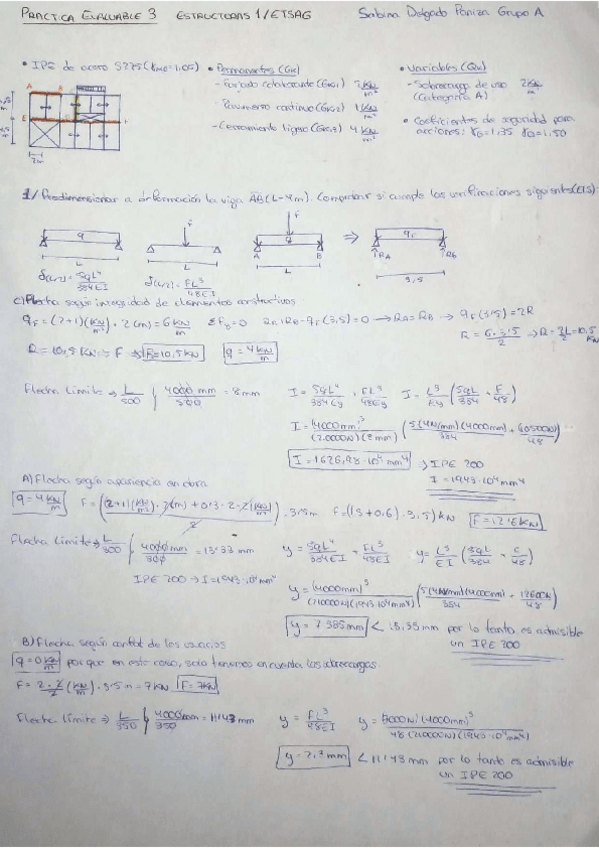 PRACTICA EVALUABLE 3 ESTRUCTURAS 1/ETSAG Sabina Delgado Paniza Grupo A
• IPE de acero S275 (γM0=1,05) • Permanentes (Gk) • Variables (Qk)
- Forjado colaborante (Gk1) 2 kN/m² - Sobrecarga de uso 2 kN/m²
(Categoría A)
- Pavimento continuo (Gk2) 1 kN/m² • Coeficientes de seguridad para
- Cerramiento ligero (Gk3) 4 kN/m acciones: γG=1,35 γQ=1,50
1/ Predimensionar a deformación la viga AB (L=4m). Comprobar si cumple las verificaciones siguientes (ELS):
q F F q qF
A B RA RB
L L L 3,5
δ(L/2)= 5qL⁴/384EI δ(L/2)= FL³/48EI
C) Flecha según integridad de elementos constructivos
qF = (2+1)(kN/m²) · 2(m) = 6 kN/m ΣFv=0 RA+RB-qF(3,5)=0 → RA=RB → qF(3,5)=2R
R = 10,5 kN = F ⇒ F=10,5 kN q=4 kN/m R = 6·3,5/2 → R=10,5 kN
Flecha límite ⇒ L/500 4000 mm/500 = 8mm I = 5qL⁴/384Ey + FL³/48Ey I = L³/Ey (5qL/384 + F/48)
I = (4000mm)³/(210000N)(8mm) (5(4N/mm)(4000mm)/384 + 10500N/48)
I = 1626,98·10⁴mm⁴ ⇒ IPE 200
I = 1943·10⁴mm⁴
A) Flecha según apariencia en obra
q=4 kN/m F = ((2+1)(kN/m²)·2(m) + 0'3·2·2(kN/m))/2 · 3,5m F=(1'5+0,6)·3,5)kN F=12'6kN
Flecha límite ⇒ L/300 4000mm/300 = 13'33 mm y = 5qL⁴/384EI + FL³/48EI y = L³/EI (5qL/384 + F/48)
IPE 200 → I=1943·10⁴mm⁴
y = (4000mm)³/(210000N)(1943·10⁴mm⁴) (5(4N/mm)(4000mm)/384 + 12600N/48)
y = 7'385mm < 13,33 mm por lo tanto es admisible
un IPE 200
B) Flecha según confort de los usuarios
q=0 kN/m porque en este caso, solo tenemos en cuenta las sobrecargas
F = 2·2/2 (kN/m) · 3'5m = 7kN F=7kN
Flecha límite ⇒ L/350 4000mm/350 = 11'43 mm y = FL³/48EI y = (7000N)(4000mm)³/48(210000N)(1943·10⁴mm⁴)
y=2,3mm < 11'43 mm por lo tanto es admisible
un IPE 200